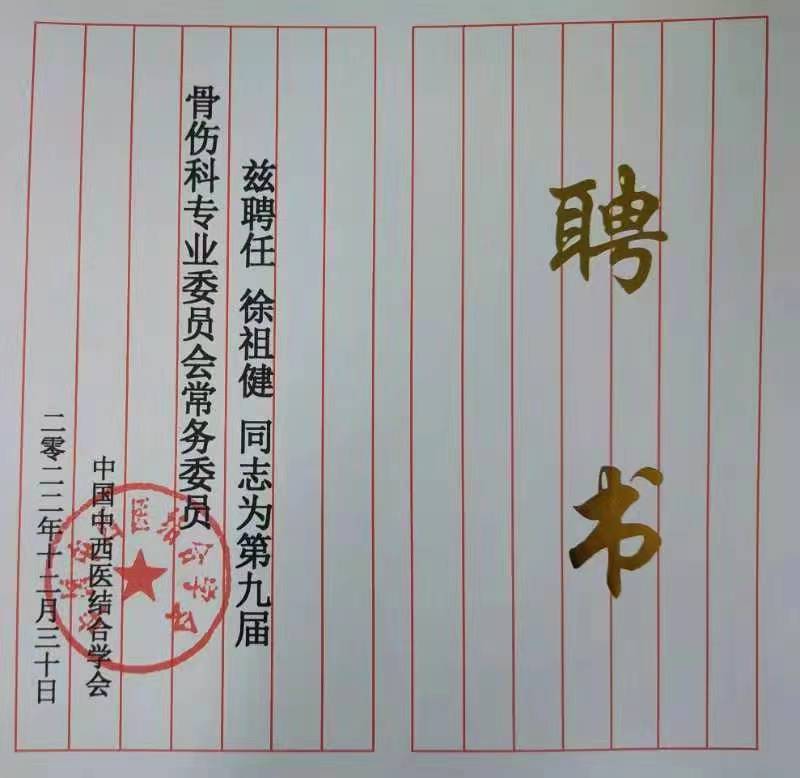 聘书
兹聘任 徐祖健 同志为第九届
骨伤科专业委员会常务委员
中国中西医结合学会
二零二二年十二月三十日